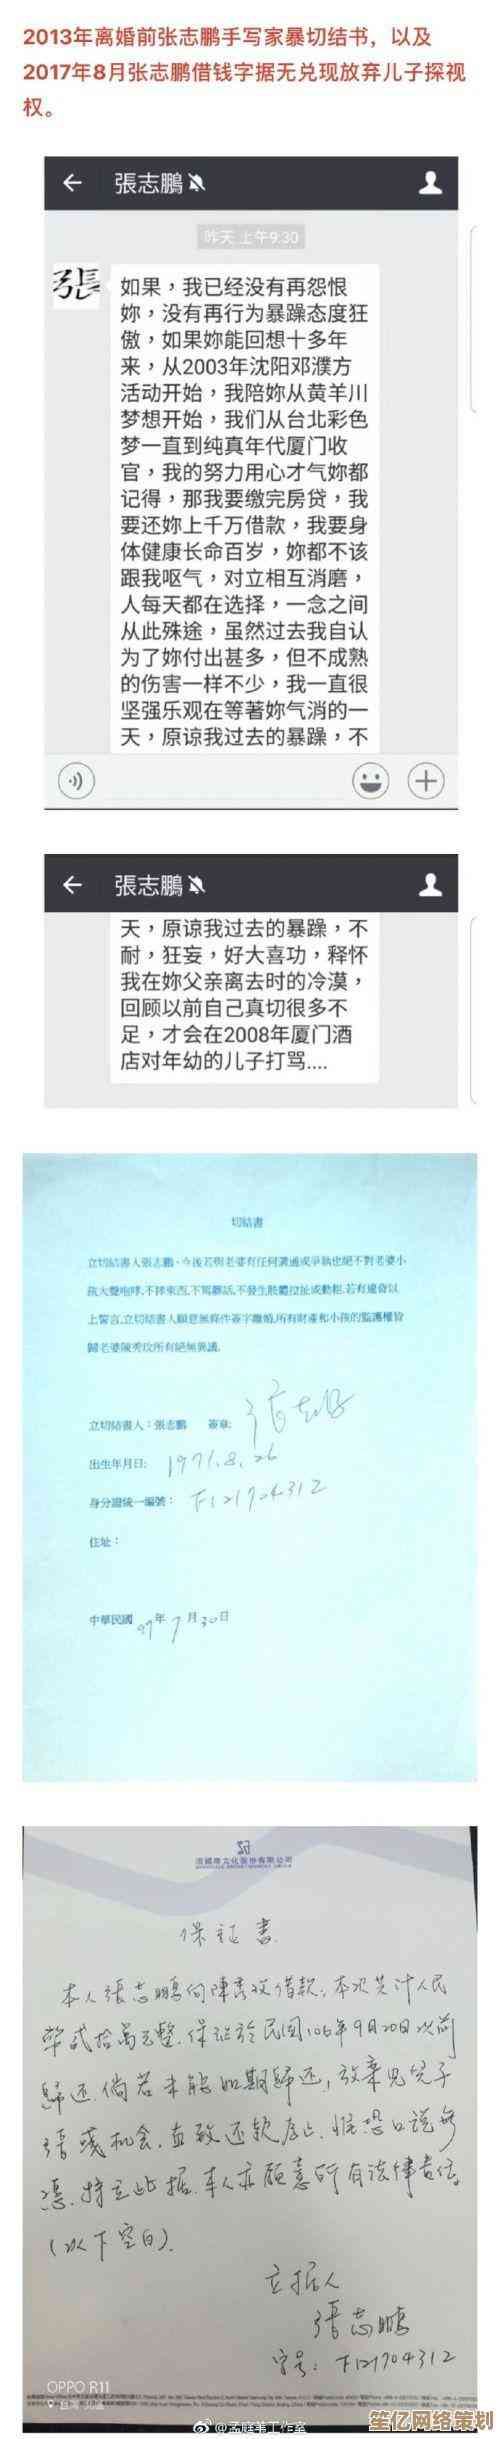 2013年离婚前张志鹏手写家暴切结书，以及
2017年8月张志鹏借钱字据无兑现放弃儿子探视
权。
張志鵬
昨天 上午9:30
如果，我已经没有再怨恨
妳，没有再行为暴躁态度狂
傲，如果妳能回想十多年
来，从2003年沈阳邓濮方
活动开始，我陪妳从黄羊川
梦想开始，我们从台北彩色
梦一直到纯真年代厦门收
官，我的努力用心才气妳都
记得，那我要缴完房贷，我
要还妳上千万借款，我要身
体健康长命百岁，妳都不该
跟我呕气，对立相互消磨，
人每天都在选择，一念之间
从此殊途，虽然过去我自认
为了妳付出甚多，但不成熟
的伤害一样不少，我一直很
坚强乐观在等著妳气消的一
天，原谅我过去的暴躁，不
張志鵬
天，原谅我过去的暴躁，不
耐，狂妄，好大喜功，释怀
我在妳父亲离去时的冷漠，
回顾以前自己真切很多不
足，才会在2008年厦门酒
店对年幼的儿子打骂....
切結書
立切結書人張志鵬，今後若與老婆有任何溝通或爭執也絕不對老婆小
孩大聲咆哮，不摔東西，不罵髒話，不發生肢體拉扯或動粗，若有違背以
上誓言，立切結書人願意無條件簽字離婚，所有財產和小孩的監護權皆
歸老婆陳秀玫所有絕無異議.
立切結書人：張志鵬 簽章：
出生年月日：1971.8.26
身分證統一編號：F121704312
住址：
中華民國 97年7月30日
保证書
本人張志鵬向陳秀玫借款，本次共计人民
幣貳拾萬元整.保证於民国106年9月20日以前
歸还.倘若未能如期歸还，放棄見兒子
機会.直致还款為止.惟恐口说無
憑.特立此据.本人亦願意所有法律責任
(以下空白).
立据人
張志鵬
字号：F121704312
OPPO R11
@孟庭苇工作室
笙亿网络策划